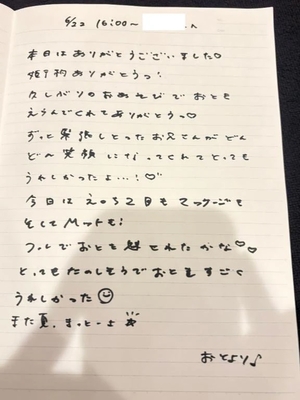 6/22 16:00~ さん
本日はありがとうございました♡
姫予約ありがとうっ!
久しぶりのおあそびでおとを
えらんでくれてありがとうっ♡
ずっと緊張しとったお兄さんがどん
ど〜笑顔になってくれてとっても
うれしかったよ…!♡
今日はえのち2回もマッサージも
そしてMットも!
フルでおとを魅せれたかな♡♡
とってもたのしそうでおともすごく
うれしかった☺
また夏、まっとーよ
おとより♪